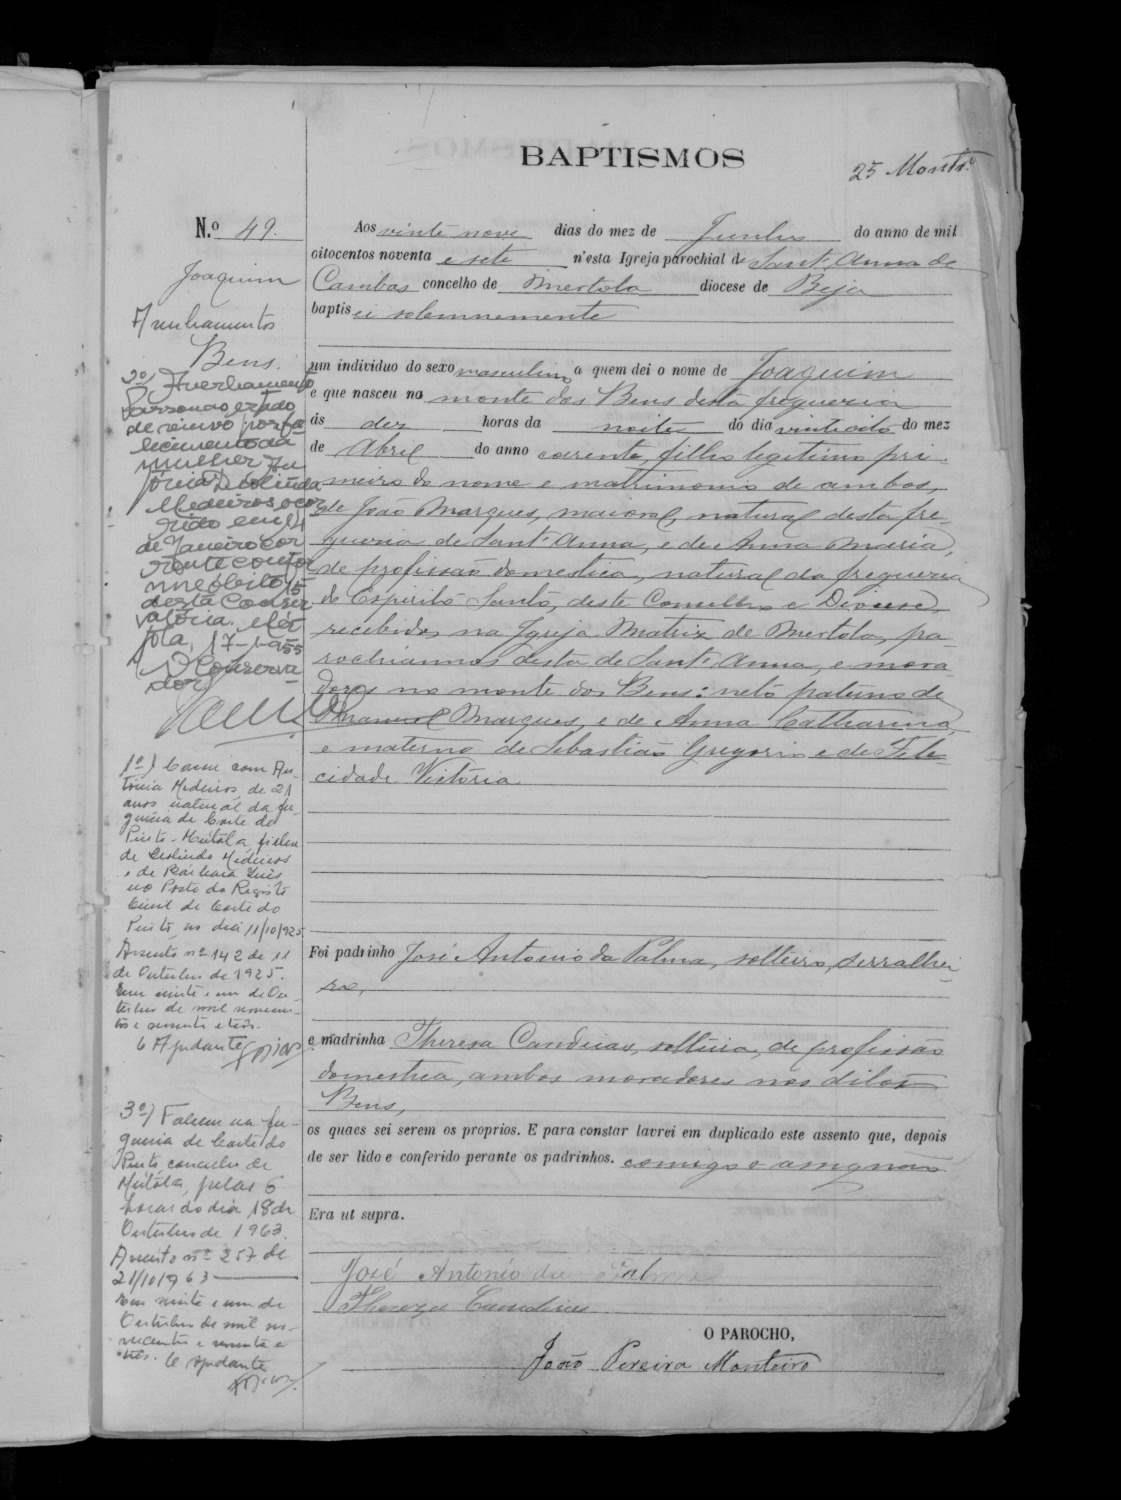 BAPTISMOS
25 Montro
N.º 49.
Joaquim
Averbamentos
Bens.
Aos vinte nove dias do mez de Junho do anno de mil
oitocentos noventa e sete n'esta Igreja parochial de Sant'Anna de
Cambas concelho de Mertola diocese de Beja
baptisei solemnemente
um individuo do sexo masculino a quem dei o nome de Joaquim
e que nasceu no monte dos Bens desta freguezia
ás dez horas da noite do dia vinte oito do mez
de Abril do anno corrente, filho legitimo pri-
meiro do nome e matrimonio de ambos,
de João Marques, maioral, natural desta fre-
guezia de Sant'Anna, e de Anna Maria,
de profissão domestica, natural da freguezia
do Espirito Santo, deste Concelho e Diocese,
recebidos na Igreja Matriz de Mertola, pa-
rochiannos desta de Sant'Anna, e mora-
dores no monte dos Bens: neto paterno de
Manuel Marques, e de Anna Catharina,
e materno de Sebastião Gregorio e de Feli-
cidade Victoria
Foi padrinho José Antonio da Palma, solteiro, serralhei-
ro,
e madrinha Theresa Candeias, solteira, de profissão
domestica, ambos moradores nos ditos
Bens,
os quaes sei serem os proprios. E para constar lavrei em duplicado este assento que, depois
de ser lido e conferido perante os padrinhos. comigo o assignão
Era ut supra.
José Antonio da Palma
Thereza Candeias
O PAROCHO,
João Pereira Monteiro
2º) Averbamento
Passou ao estado
de viuvo por fa
lecimento da
mulher An
tónia Deolinda
Medeiros, ocor
rido em 14
de Janeiro cor
rente confor
me óbito 15
desta Conser
vatória. Mér
tola, 17-1-955
O Conserva
dor,
1º) Casou com An-
tónia Medeiros, de 21
anos, natural da fre-
guesia de Corte do
Pinto - Mértola, filha
de Deolindo Medeiros
e de Bárbara Luís
no Posto do Registo
Civil de Corte do
Pinto, no dia 11/10/925
Assento nº 142 de 11
de Outubro de 1925.
Em vinte e um de Ou-
tubro de mil novecen-
tos e sessenta e três.
O Ajudante
3º) Faleceu na fre-
guesia de Corte do
Pinto, concelho de
Mértola, pelas 6
horas do dia 18 de
Outubro de 1963.
Assento nº 257 de
21/10/963
Em vinte e um de
Outubro de mil no-
vecentos e sessenta e
três. O Ajudante